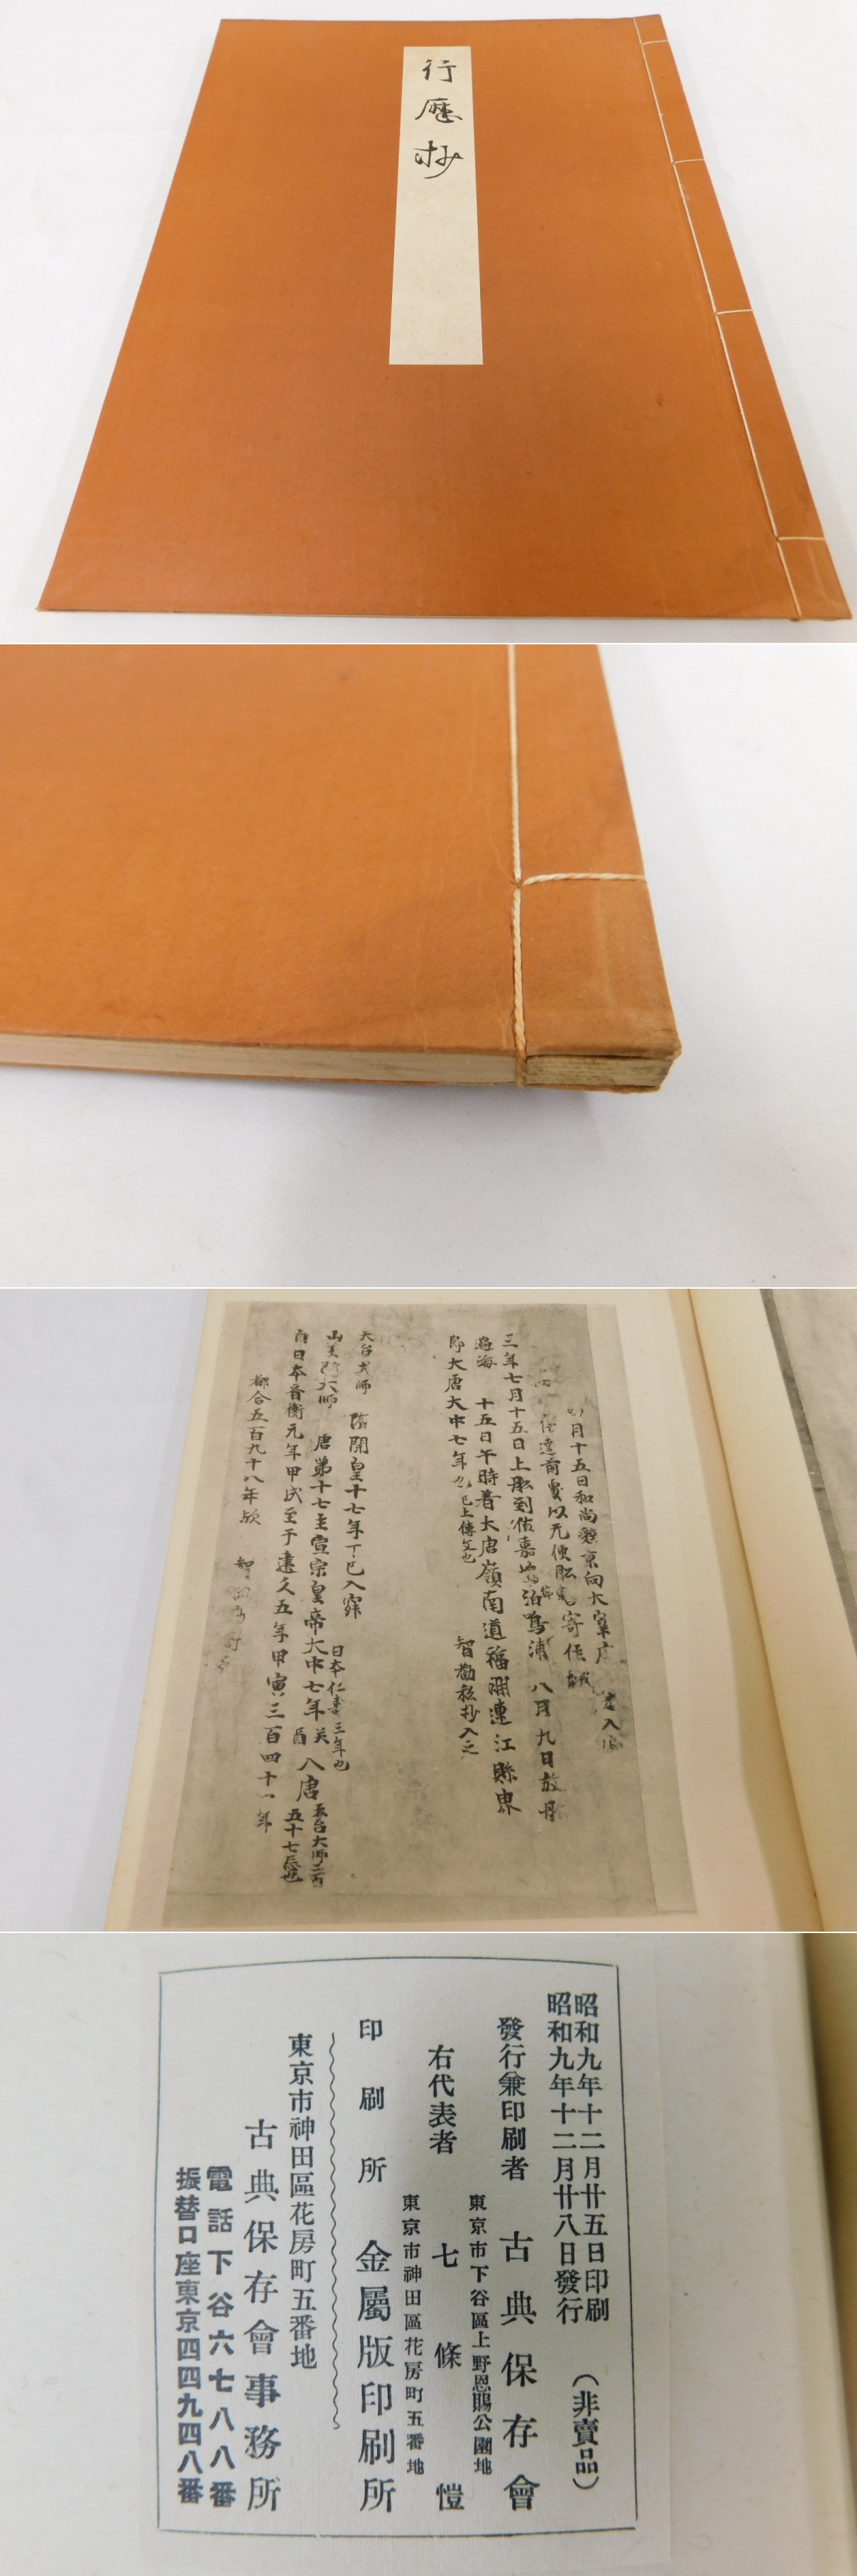 行歴抄
月十五日和尚
三年七月十五日上船到
浦 八月九日放
過海 十五日午時着大唐嶺南道福州連江縣
大唐大中七年也 已上傳文也 智勸私抄入之
天台大師 隋開皇十七年丁巳入
大師 唐第十七主宣宗皇帝大中七年 入唐
日本仁壽三年也
自日本齊衡元年甲戌至于建久五年甲寅三百四十一年
都合五百九十八年歟
昭和九年十二月廿五日印刷 (非賣品)
昭和九年十二月廿八日發行
發行兼印刷者 古典保存會
東京市下谷區上野恩賜公園地
右代表者 七條愷
東京市神田區花房町五番地
印刷所 金屬版印刷所
東京市神田區花房町五番地
古典保存會事務所
電話下谷六七八八番
振替口座東京四四九四八番